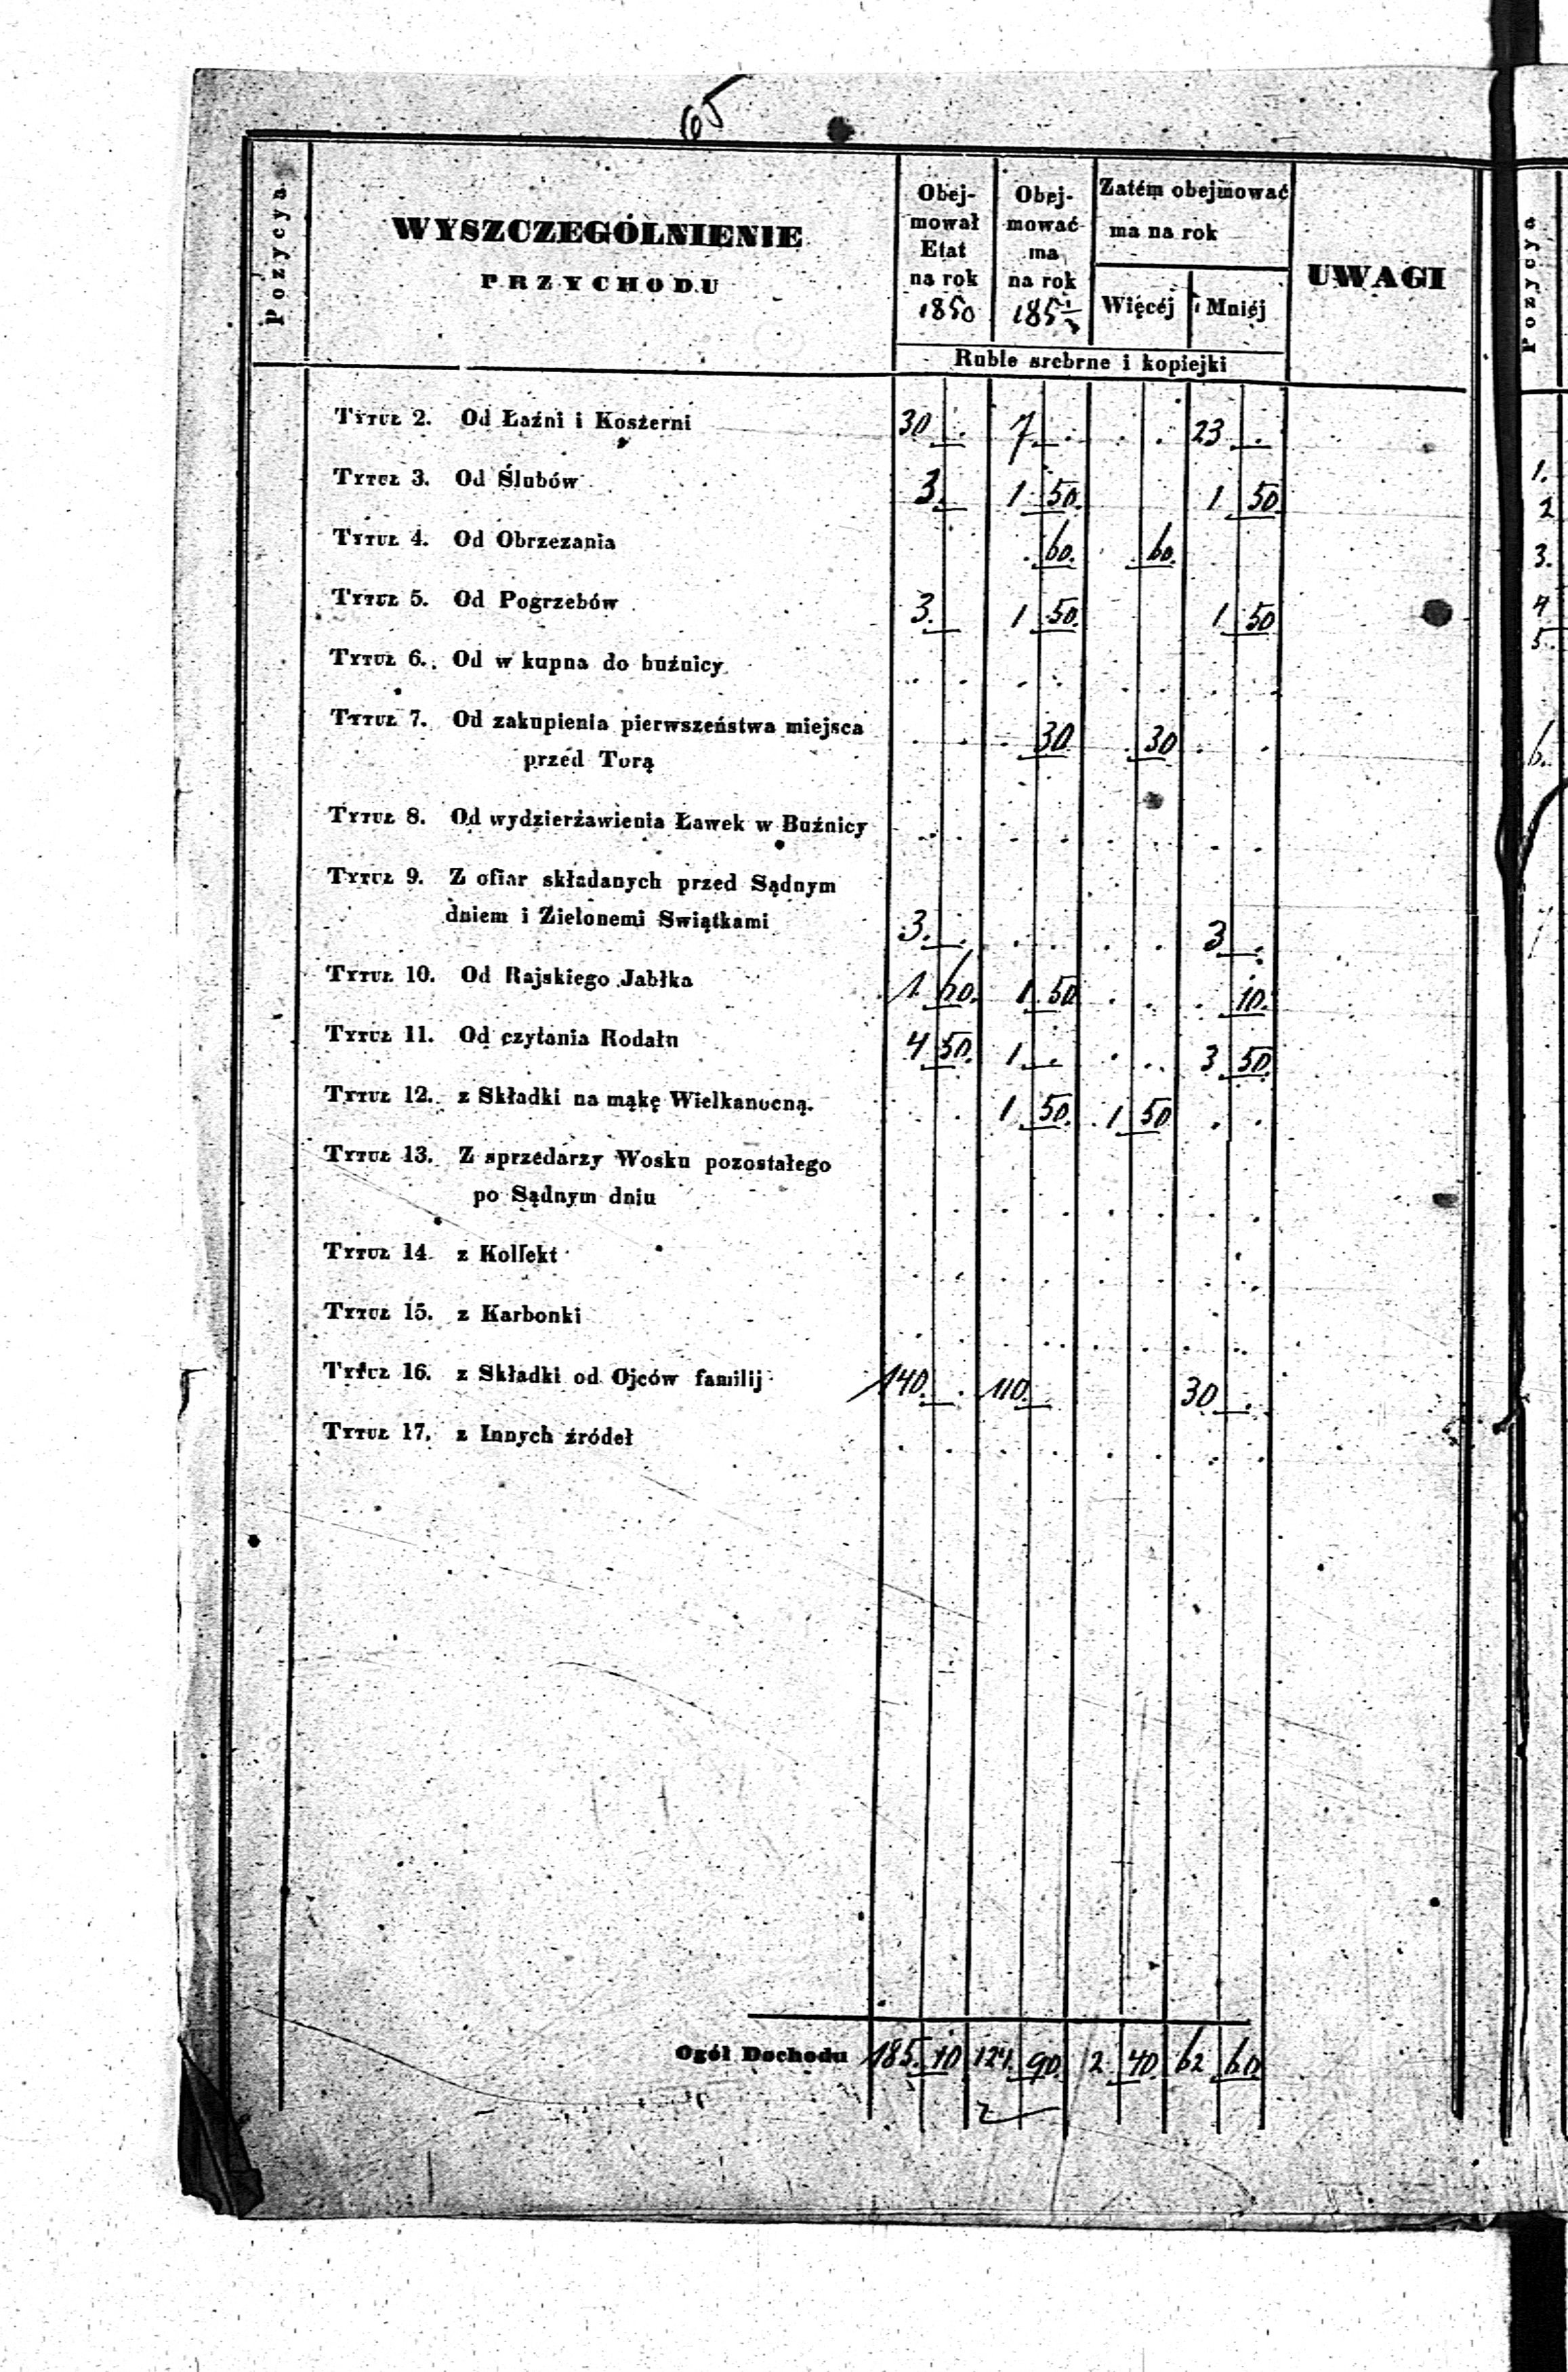 65
Pozycya
WYSZCZEGÓLNIENIE
PRZYCHODU
Obej-
mował
Etat
na rok
1850
Obej-
mować
ma
na rok
185 1/3
Zatém obejmować
ma na rok
Więcéj
Mniéj
UWAGI
Ruble srebrne i kopiejki
Tytuł 2. Od Łaźni i Koszerni 30 . 7 . . . 23 .
Tytuł 3. Od Ślubów 3. 1 50. 1 50
Tytuł 4. Od Obrzezania . 60. . 60.
Tytuł 5. Od Pogrzebów 3. 1 50. 1 50
Tytuł 6. Od w kupna do buźnicy . . . . . . . .
Tytuł 7. Od zakupienia pierwszeństwa miejsca
przed Torą . . . 30 . 30 . .
Tytuł 8. Od wydzierżawienia Ławek w Buźnicy . . . . . . . .
Tytuł 9. Z ofiar składanych przed Sądnym
dniem i Zielonemi Swiątkami 3. . . . . . 3 .
Tytuł 10. Od Rajskiego Jabłka 1 60. 1 50 . . . 10.
Tytuł 11. Od czytania Rodału 4 50. 1 . . . 3 50.
Tytuł 12. z Składki na mąkę Wielkanocną. . . 1 50. 1 50 . .
Tytuł 13. Z sprzedarzy Wosku pozostałego
po Sądnym dniu . . . . . . . .
Tytuł 14. z Kollekt . . . . . . . .
Tytuł 15. z Karbonki . . . . . . . .
Tytuł 16. z Składki od Ojców familij 140. . 110. 30 .
Tytuł 17. z Innych źródeł . . . . . . . .
Ogół Dochodu 185. 10 124. 90. 2 40. 62 60
Pozycya
1.
2
3.
4
5.
6.